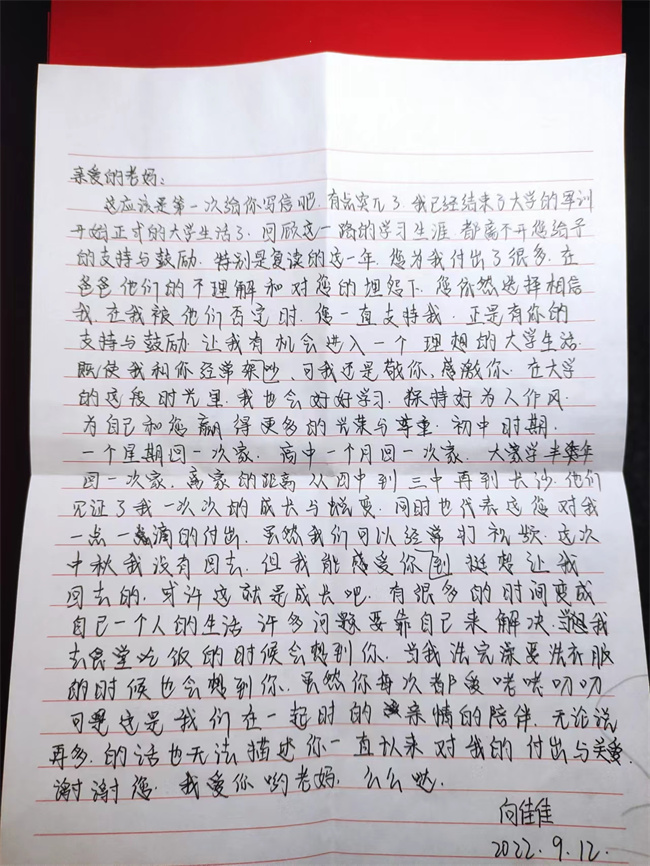 亲爱的老妈:
这应该是第一次给你写信吧,有点突兀了,我已经结束了大学的军训
开始正式的大学生活了,回顾这一路的学习生涯,都离不开您给予
的支持与鼓励,特别是复读的这一年,您为我付出了很多,在
爸爸他们的不理解和对您的埋怨下,您依然选择相信
我,在我被他们否定时,您一直支持我,正是有你的
支持与鼓励,让我有机会进入一个理想的大学生活.
既使我和你经常架吵,可我还是敬你、感激你,在大学
的这段时光里,我也会好好学习,保持好为人作风,
为自己和您赢得更多的光荣与尊重.初中时期,
一个星期回一次家,高中一个月回一次家,大学半年
回一次家,离家的距离从四中到三中再到长沙,他们
见证了我一次次的成长与蜕变,同时也代表这您对我
一点一滴的付出,虽然我们可以经常打视频,这次
中秋我没有回去,但我能感受你到挺想让我
回去的,或许这就是成长吧,有很多的时间变成
自己一个人的生活,许多问题要靠自己来解决,当我
去食堂吃饭的时候会想到你,当我洗完澡要洗衣服
的时候也会想到你,虽然你每次都爱唠唠叨叨
可是这是我们在一起时的亲情的陪伴,无论说
再多的话也无法描述你一直以来对我的付出与关爱,
谢谢您,我爱你哟老妈,么么哒.
向佳佳
2022.9.12.